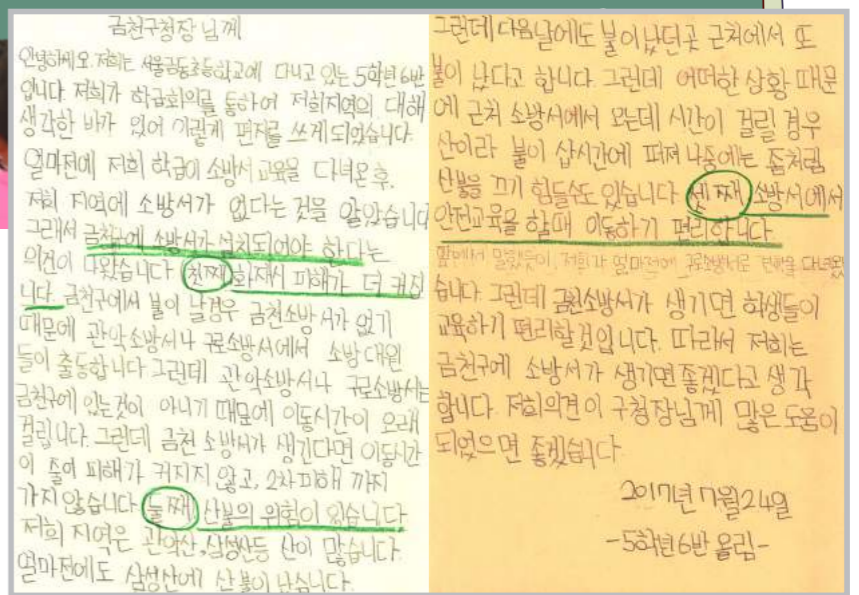 금천구청장님께
안녕하세요. 저희는 서울금동초등학교에 다니고 있는 5학년 6반
입니다. 저희가 학급회의를 통하여 저희지역의 대해
생각한 바가 있어 이렇게 편지를 쓰게되었습니다.
얼마전에 저희 학급이 소방서 교육을 다녀온후,
저희 지역에 소방서가 없다는 것을 알았습니다
그래서 금천구에 소방서가 설치되어야 한다는
의견이 나왔습니다 첫째 화재시 피해가 더 커집
니다. 금천구에서 불이 날경우 금천소방서가 없기
때문에 관악소방서나 구로소방서에서 소방대원
들이 출동합니다 그런데 관악소방서나 구로소방서는
금천구에 있는것이 아니기 때문에 이동시간이 오래
걸립니다. 그런데 금천 소방서가 생긴다면 이동시간
이 줄어 피해가 커지지 않고, 2차피해 까지
가지 않습니다 둘째 산불의 위험이 있습니다
저희 지역은 관악산, 삼성산등 산이 많습니다.
얼마전에도 삼성산에 산불이 났습니다.
그런데 다음날에도 불이 났던곳 근처에서 또
불이 났다고 합니다. 그런데 어떠한 상황 때문
에 근처 소방서에서 오는데 시간이 걸릴 경우
산이라 불이 삽시간에 퍼져 나중에는 좀처럼
산불을 끄기 힘들수도 있습니다 셋째 소방서에서
안전교육을 할때 이동하기 편리합니다.
앞에서 말했듯이, 저희가 얼마전에 구로소방서로 견학을 다녀왔
습니다. 그런데 금천소방서가 생기면 학생들이
교육하기 편리할것입니다. 따라서 저희는
금천구에 소방서가 생기면좋겠다고 생각
합니다. 저희의견이 구청장님께 많은 도움이
되었으면 좋겠습니다
2017년 7월24일
-5학년6반 올림-